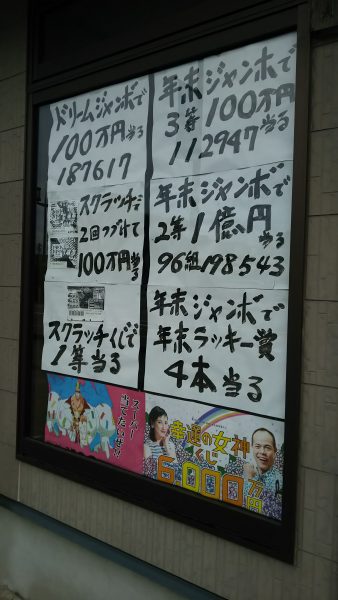 ドリームジャンボで
100万円当る
187617
年末ジャンボで
3等100万円
112947当る
スクラッチで
2回つづけて
100万円当る
年末ジャンボで
2等1億円当る
96組198543
スクラッチくじで
1等当る
年末ジャンボで
年末ラッキー賞
4本当る
スーパー
当てたいぜ!!
幸運の女神
くじ
6,000万円